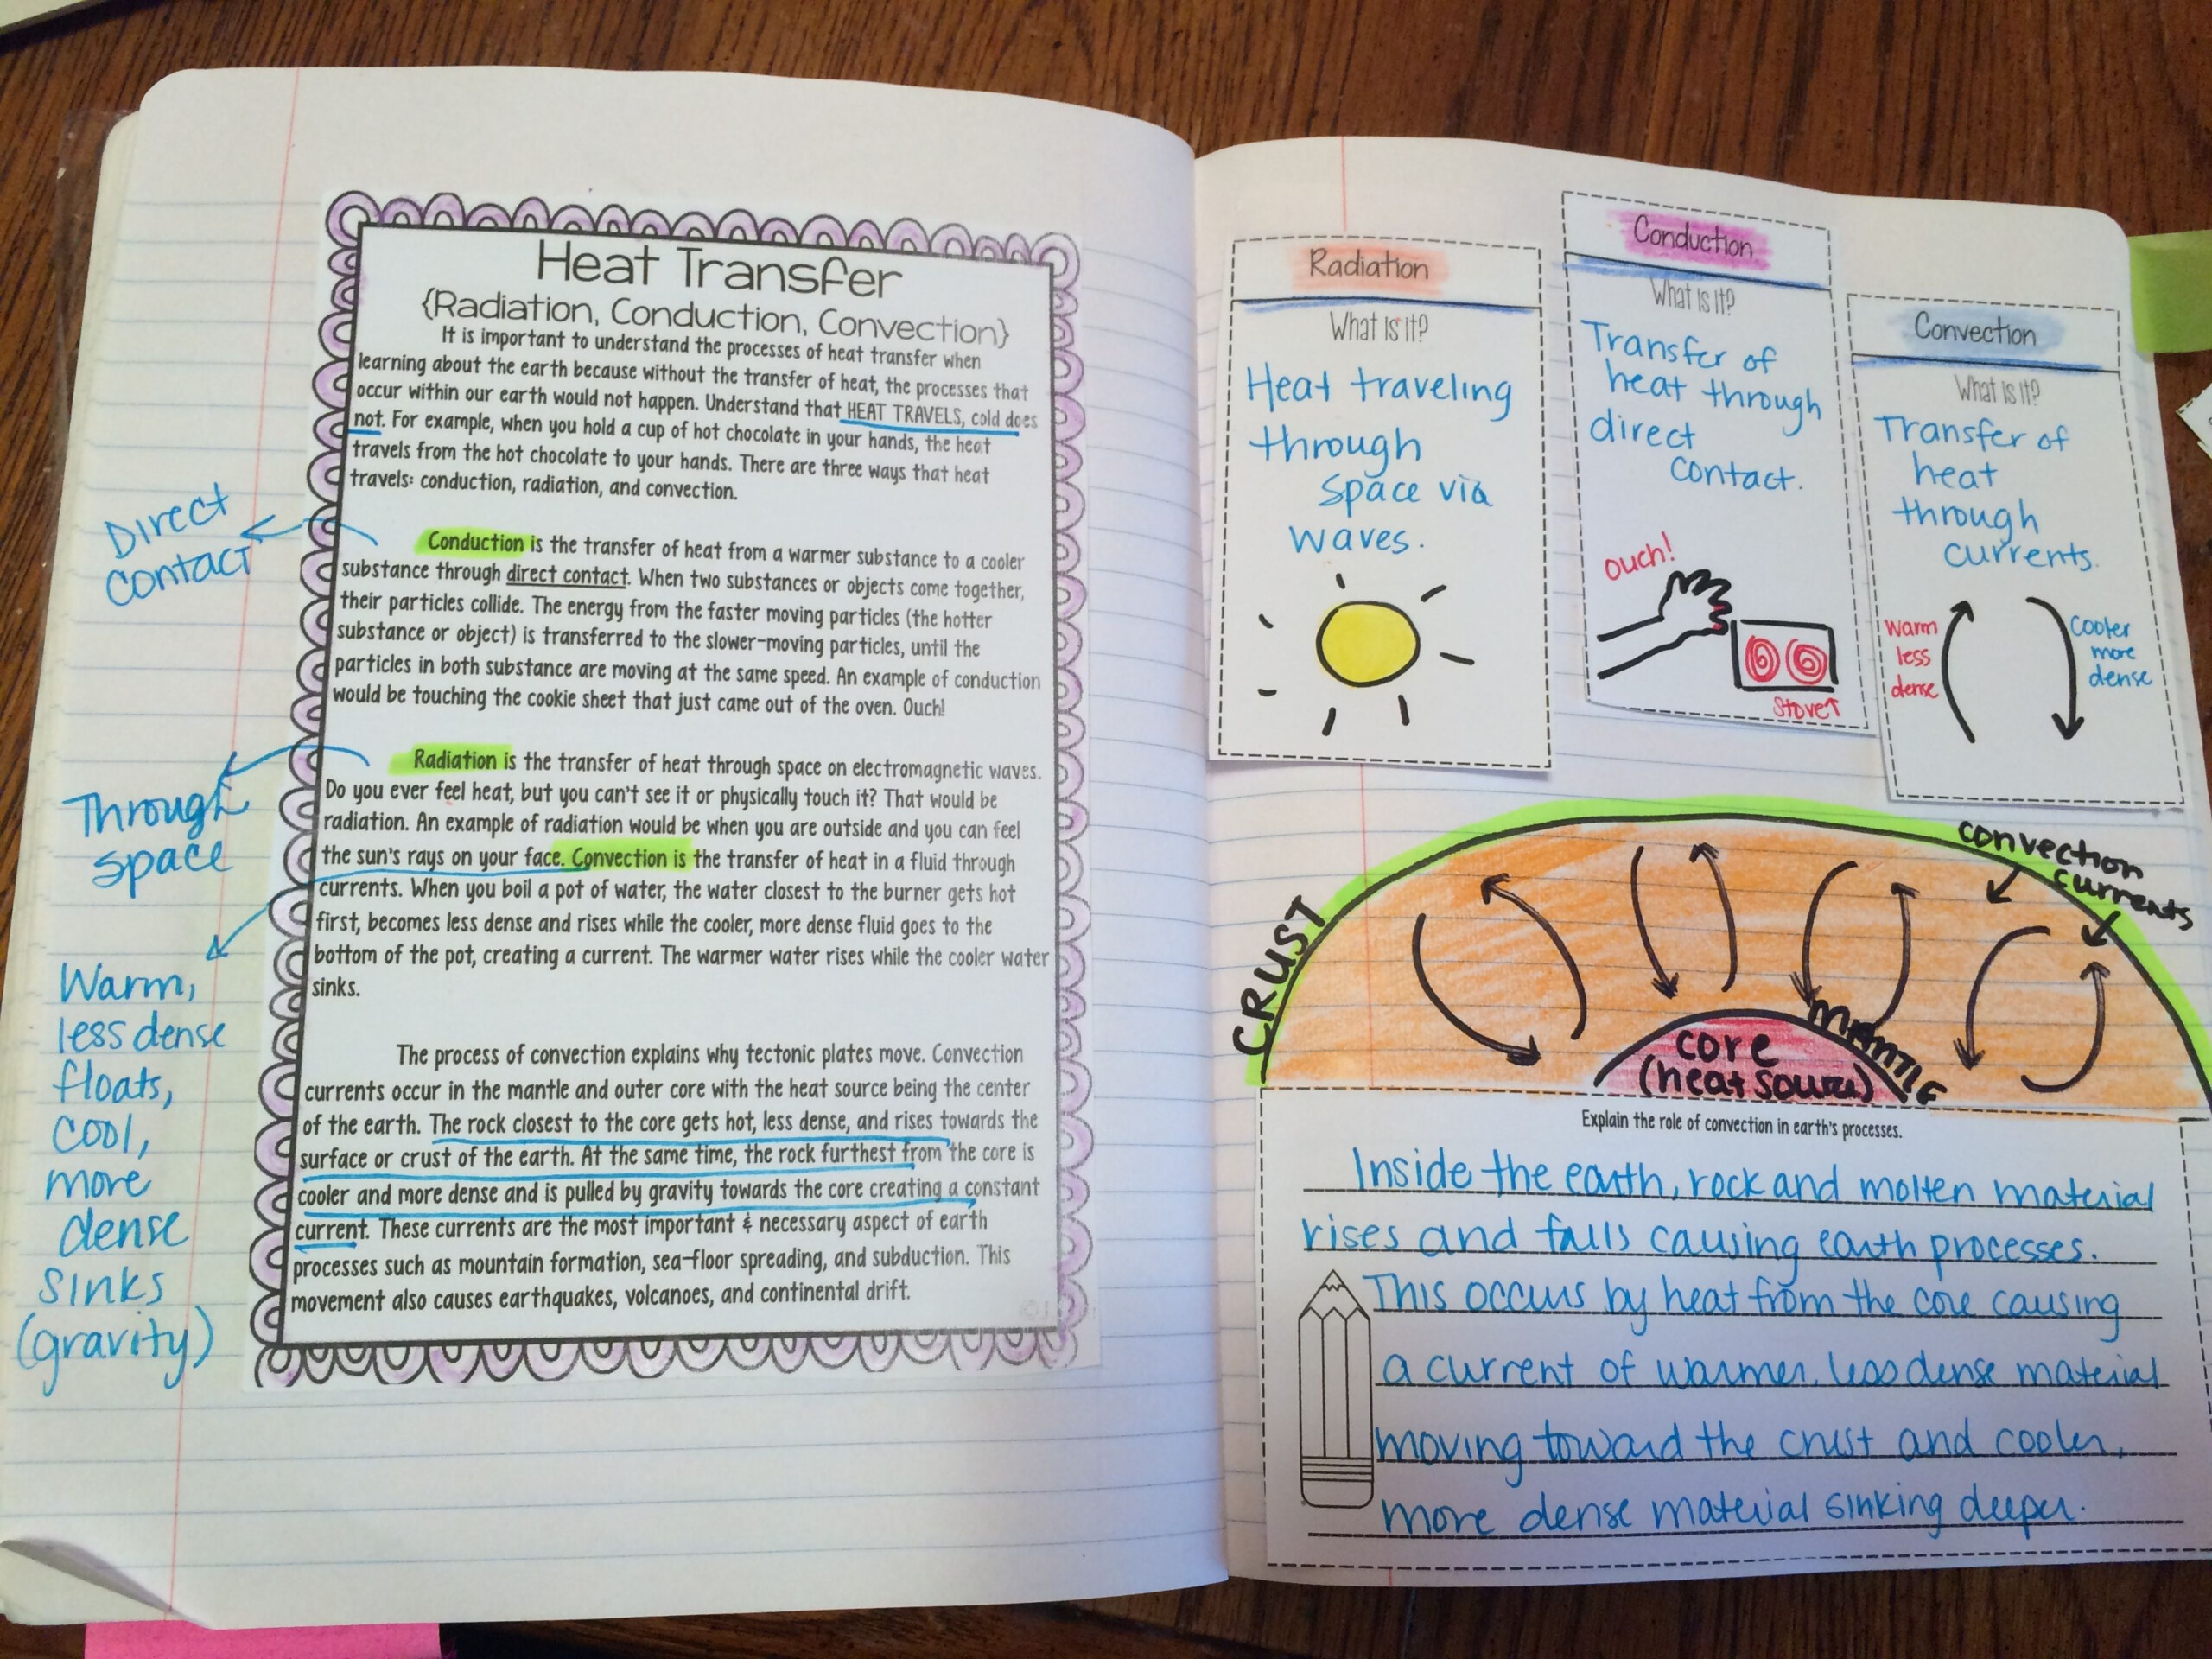 Heat Transfer
{Radiation, Conduction, Convection}
It is important to understand the processes of heat transfer when
learning about the earth because without the transfer of heat, the processes that
occur within our earth would not happen. Understand that HEAT TRAVELS, cold does
not. For example, when you hold a cup of hot chocolate in your hands, the heat
travels from the hot chocolate to your hands. There are three ways that heat
travels: conduction, radiation, and convection.
Direct
contact
Conduction is the transfer of heat from a warmer substance to a cooler
substance through direct contact. When two substances or objects come together,
their particles collide. The energy from the faster moving particles (the hotter
substance or object) is transferred to the slower-moving particles, until the
particles in both substance are moving at the same speed. An example of conduction
would be touching the cookie sheet that just came out of the oven. Ouch!
Through
space
Radiation is the transfer of heat through space on electromagnetic waves.
Do you ever feel heat, but you can't see it or physically touch it? That would be
radiation. An example of radiation would be when you are outside and you can feel
the sun's rays on your face. Convection is the transfer of heat in a fluid through
currents. When you boil a pot of water, the water closest to the burner gets hot
first, becomes less dense and rises while the cooler, more dense fluid goes to the
bottom of the pot, creating a current. The warmer water rises while the cooler water
sinks.
Warm,
less dense
floats,
cool,
more
dense
sinks
(gravity)
The process of convection explains why tectonic plates move. Convection
currents occur in the mantle and outer core with the heat source being the center
of the earth. The rock closest to the core gets hot, less dense, and rises towards the
surface or crust of the earth. At the same time, the rock furthest from the core is
cooler and more dense and is pulled by gravity towards the core creating a constant
current. These currents are the most important & necessary aspect of earth
processes such as mountain formation, sea-floor spreading, and subduction. This
movement also causes earthquakes, volcanoes, and continental drift.
Radiation
What is it?
Heat traveling
through
space via
waves.
Conduction
What is it?
Transfer of
heat through
direct
contact.
ouch!
stove
Convection
What is it?
Transfer of
heat
through
currents.
warm
less
dense
cooler
more
dense
convection
currents
CRUST
MANTLE
core
(heat source)
Explain the role of convection in earth's processes.
Inside the earth, rock and molten material
rises and falls causing earth processes.
This occurs by heat from the core causing
a current of warmer, less dense material
moving toward the crust and cooler,
more dense material sinking deeper.